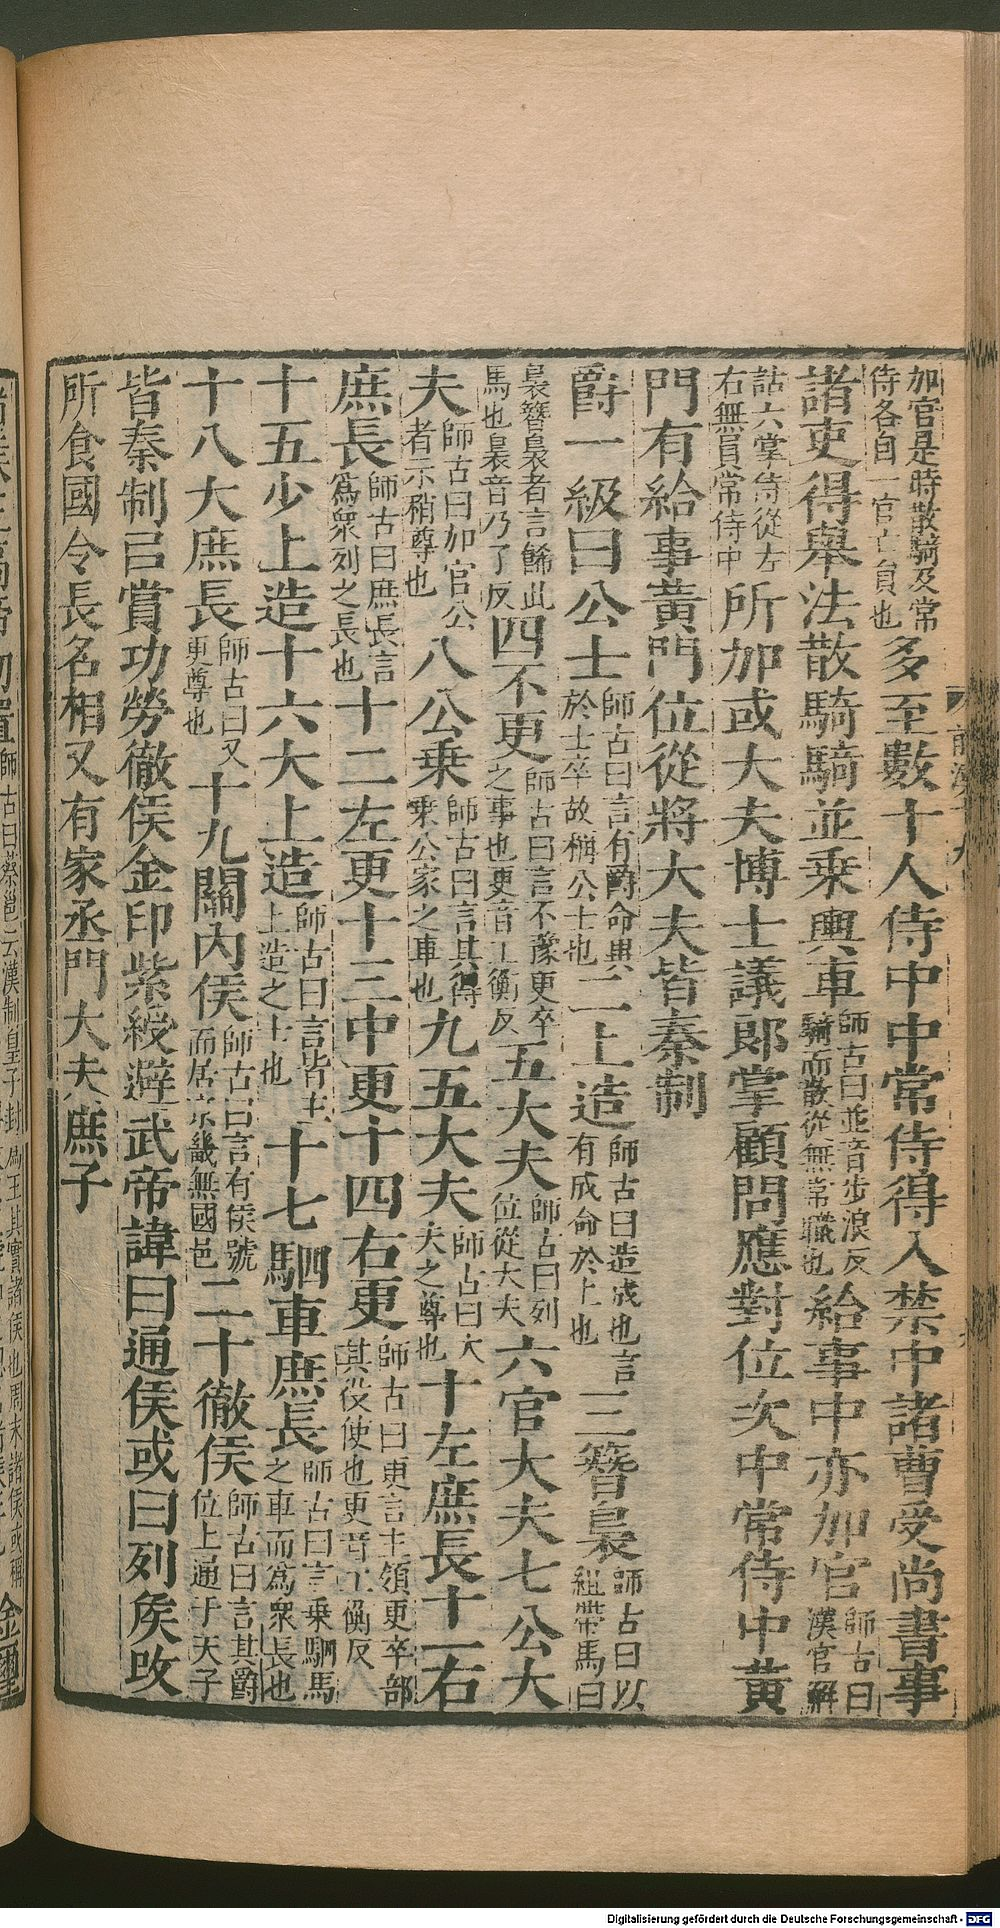 加官是時散騎及常
侍各自一官亡員也多至數十人侍中中常侍得入禁中諸曹受尚書事
諸吏得舉法散騎騎並乗輿車師古曰並音步浪反騎而散從無常職也給事中亦加官師古曰漢官解
詁六掌侍從左右無員常侍中所加或大夫博士議郎掌顧問應對位次中常侍中黃
門有給事黃門位從將大夫皆秦制
爵一級曰公士師古曰言有爵命異於士卒故稱公士也二上造師古曰造成也言有成命於上也三簪裊師古曰以組帶馬曰
裊簪裊者言飾此馬也裊音乃了反四不更師古曰言不豫更卒之事也更音工衡反五大夫師古曰列位從大夫六官大夫七公大
夫師古曰加官公者示稍尊也八公乗師古曰言其得乗公家之車也九五大夫師古曰大夫之尊也十左庶長十一右
庶長師古曰庶長言爲衆列之長也十二左更十三中更十四右更師古曰更言主領更卒部其役使也更音工衡反
十五少上造十六大上造師古曰言皆主上造之士也十七駟車庶長師古曰言乗駟馬之車而爲衆長也
十八大庶長師古曰又更尊也十九關內侯師古曰言有侯號而居京畿無國邑二十徹侯師古曰言其爵位上通于天子
皆秦制㠯賞功勞徹侯金印紫綬避武帝諱曰通侯或曰列侯改
所食國令長名相又有家丞門大夫庶子
Digitalisierung gefördert durch die Deutsche Forschungsgemeinschaft - DFG